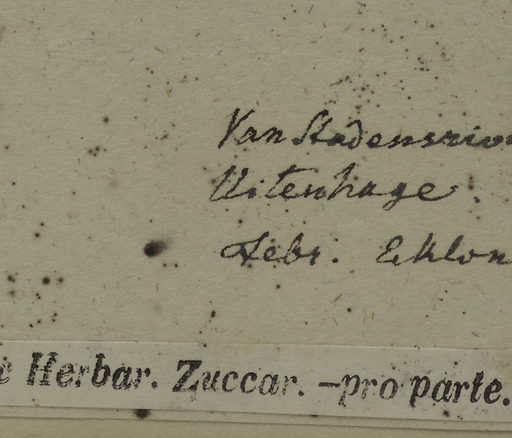 Van Stadensrivi
Uitenhage.
Febr. Eklon
e Herbar. Zuccar. —pro parte.